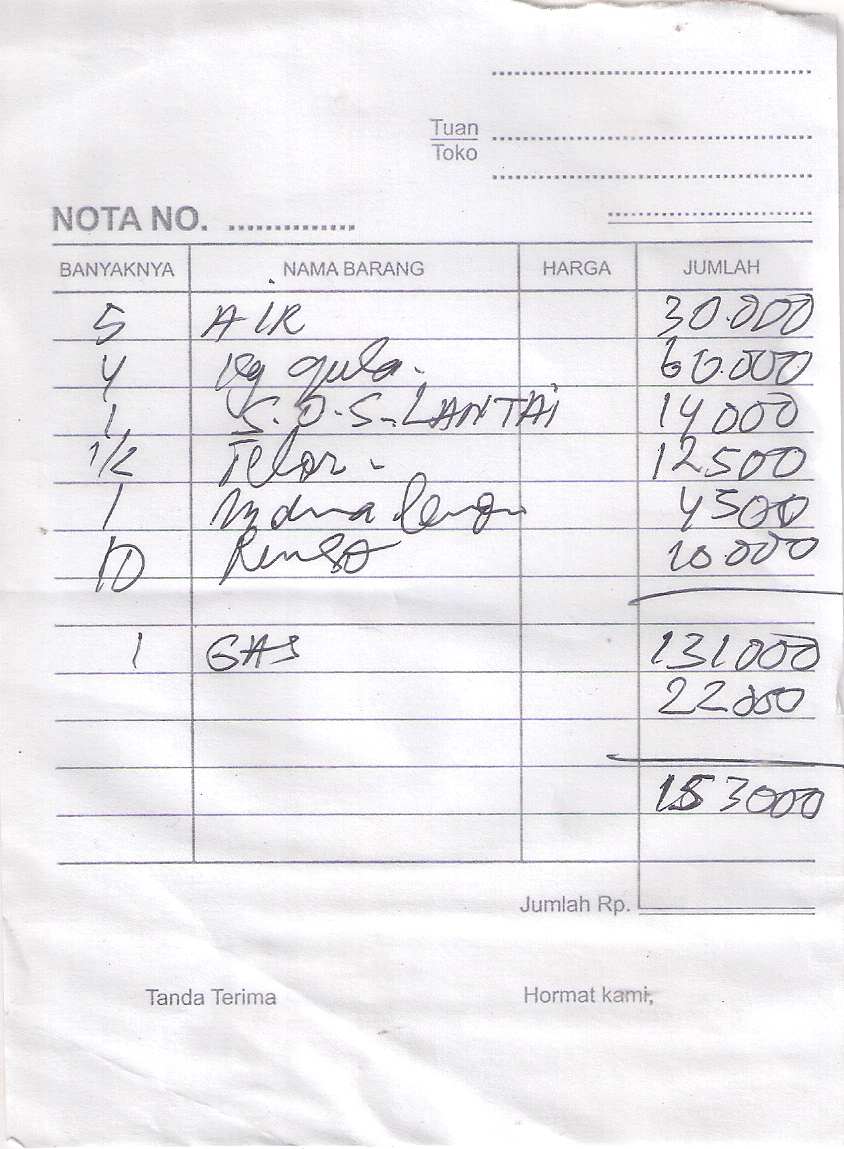 Tuan
Toko
NOTA NO. ..............
BANYAKNYA NAMA BARANG HARGA JUMLAH
5 AIR 30.000
4 kg gula. 60.000
1 S.O.S-LANTAI 14000
1/2 Telor - 12500
1 4500
10 Rinso 10.000
131000
1 GAS 22000
153000
Jumlah Rp.
Tanda Terima Hormat kami,